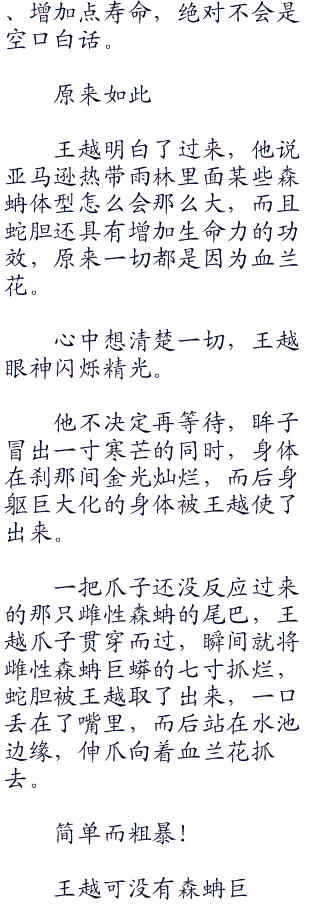 、增加点寿命，绝对不会是
空口白话。
原来如此
王越明白了过来，他说
亚马逊热带雨林里面某些森
蚺体型怎么会那么大，而且
蛇胆还具有增加生命力的功
效，原来一切都是因为血兰
花。
心中想清楚一切，王越
眼神闪烁精光。
他不决定再等待，眸子
冒出一寸寒芒的同时，身体
在刹那间金光灿烂，而后身
躯巨大化的身体被王越使了
出来。
一把爪子还没反应过来
的那只雌性森蚺的尾巴，王
越爪子贯穿而过，瞬间就将
雌性森蚺巨蟒的七寸抓烂，
蛇胆被王越取了出来，一口
丢在了嘴里，而后站在水池
边缘，伸爪向着血兰花抓
去。
简单而粗暴！
王越可没有森蚺巨